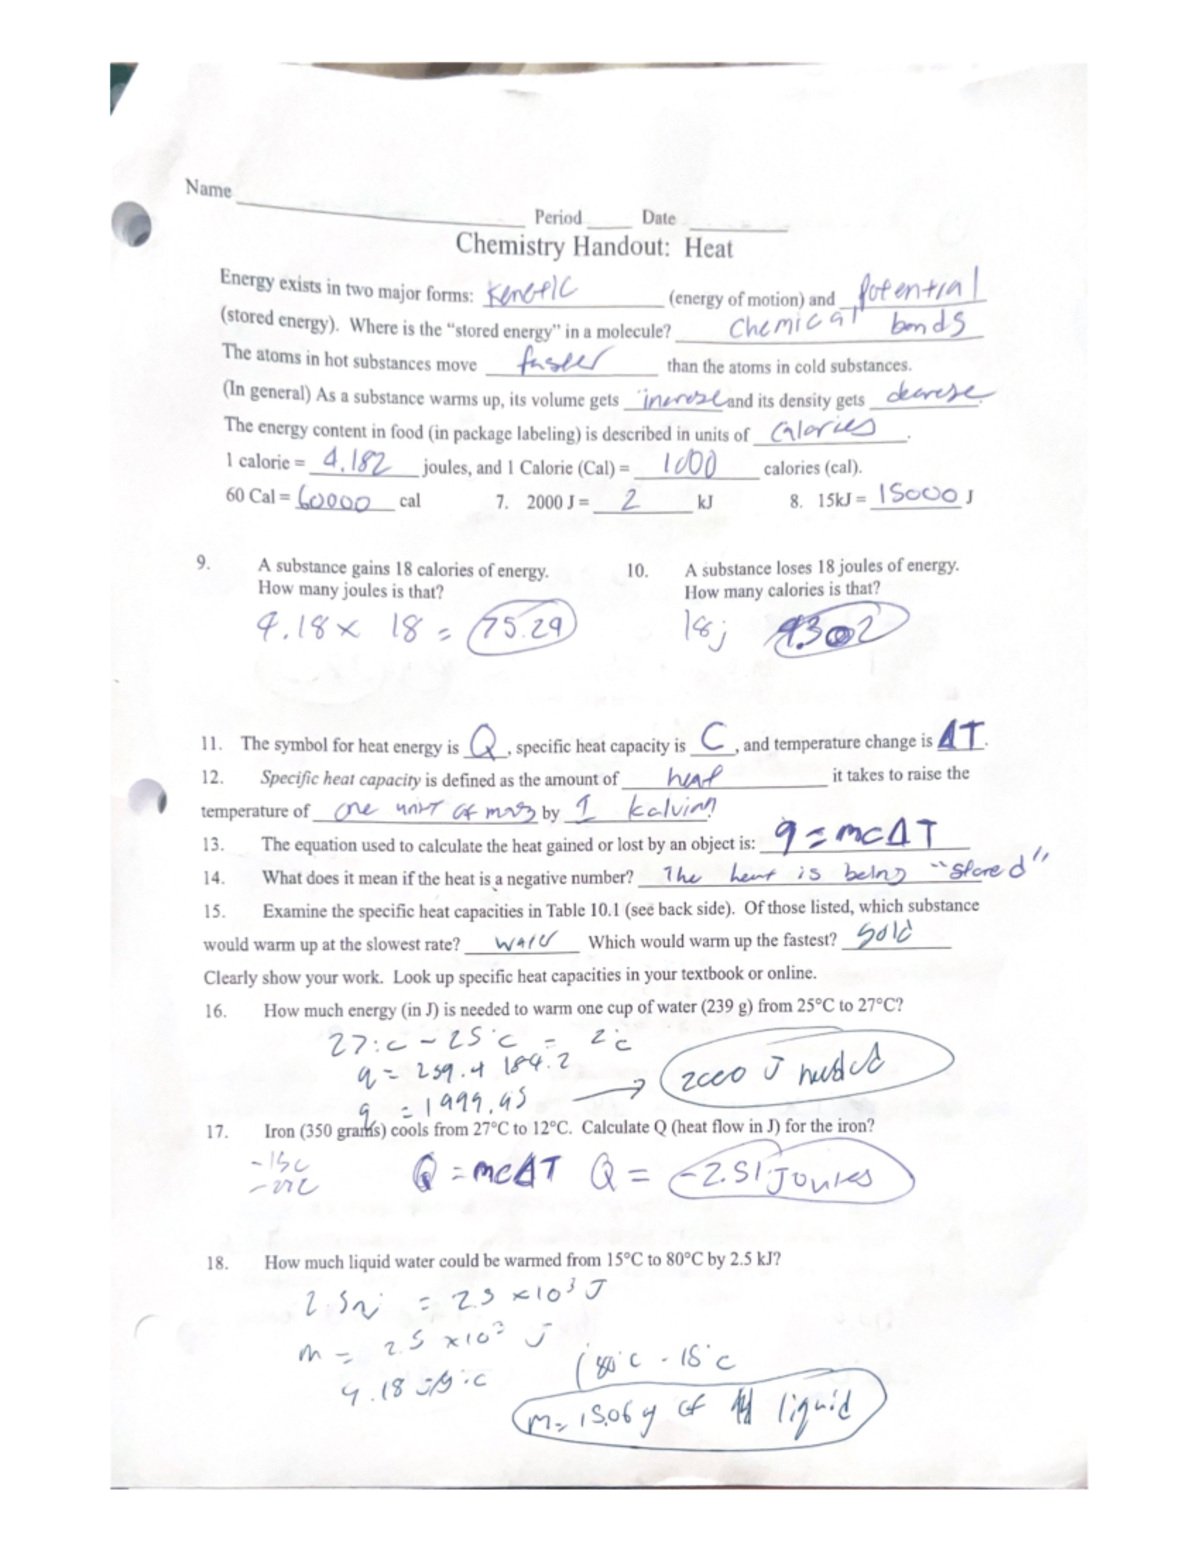 Name ____________ Period ____ Date ________
Chemistry Handout: Heat
Energy exists in two major forms: Kenetic (energy of motion) and potential
(stored energy). Where is the “stored energy” in a molecule? Chemical bonds
The atoms in hot substances move faster than the atoms in cold substances.
(In general) As a substance warms up, its volume gets increse and its density gets decrese.
The energy content in food (in package labeling) is described in units of Calories.
1 calorie = 4.182 joules, and 1 Calorie (Cal) = 1000 calories (cal).
60 Cal = 60000 cal 7. 2000 J = 2 kJ 8. 15kJ = 15000 J
9. A substance gains 18 calories of energy. 10. A substance loses 18 joules of energy.
How many joules is that? How many calories is that?
4.18 x 18 = 75.29 18j 4.302
11. The symbol for heat energy is Q, specific heat capacity is C, and temperature change is ΔT.
12. Specific heat capacity is defined as the amount of heat it takes to raise the
temperature of one unit of mass by 1 kalvinn.
13. The equation used to calculate the heat gained or lost by an object is: q = mcΔT
14. What does it mean if the heat is a negative number? The heat is being "stored"
15. Examine the specific heat capacities in Table 10.1 (see back side). Of those listed, which substance
would warm up at the slowest rate? water Which would warm up the fastest? Gold
Clearly show your work. Look up specific heat capacities in your textbook or online.
16. How much energy (in J) is needed to warm one cup of water (239 g) from 25°C to 27°C?
27°c - 25°c = 2°c
q = 239.4 184.2
2000 J needed
q = 1999.95
17. Iron (350 grams) cools from 27°C to 12°C. Calculate Q (heat flow in J) for the iron?
-15c
Q = mcΔT Q = -2.51 Joules
18. How much liquid water could be warmed from 15°C to 80°C by 2.5 kJ?
= 2.5 x10³ J
m = 2.5 x10³ J
(80°c - 15°c
4.18 J/g°c
m = 15.06 g of liquid